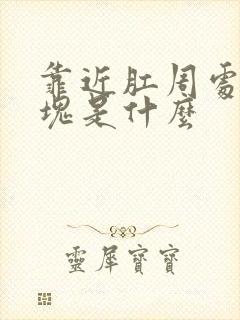 靠近肛周處
塊是什麼
靈犀寶寶